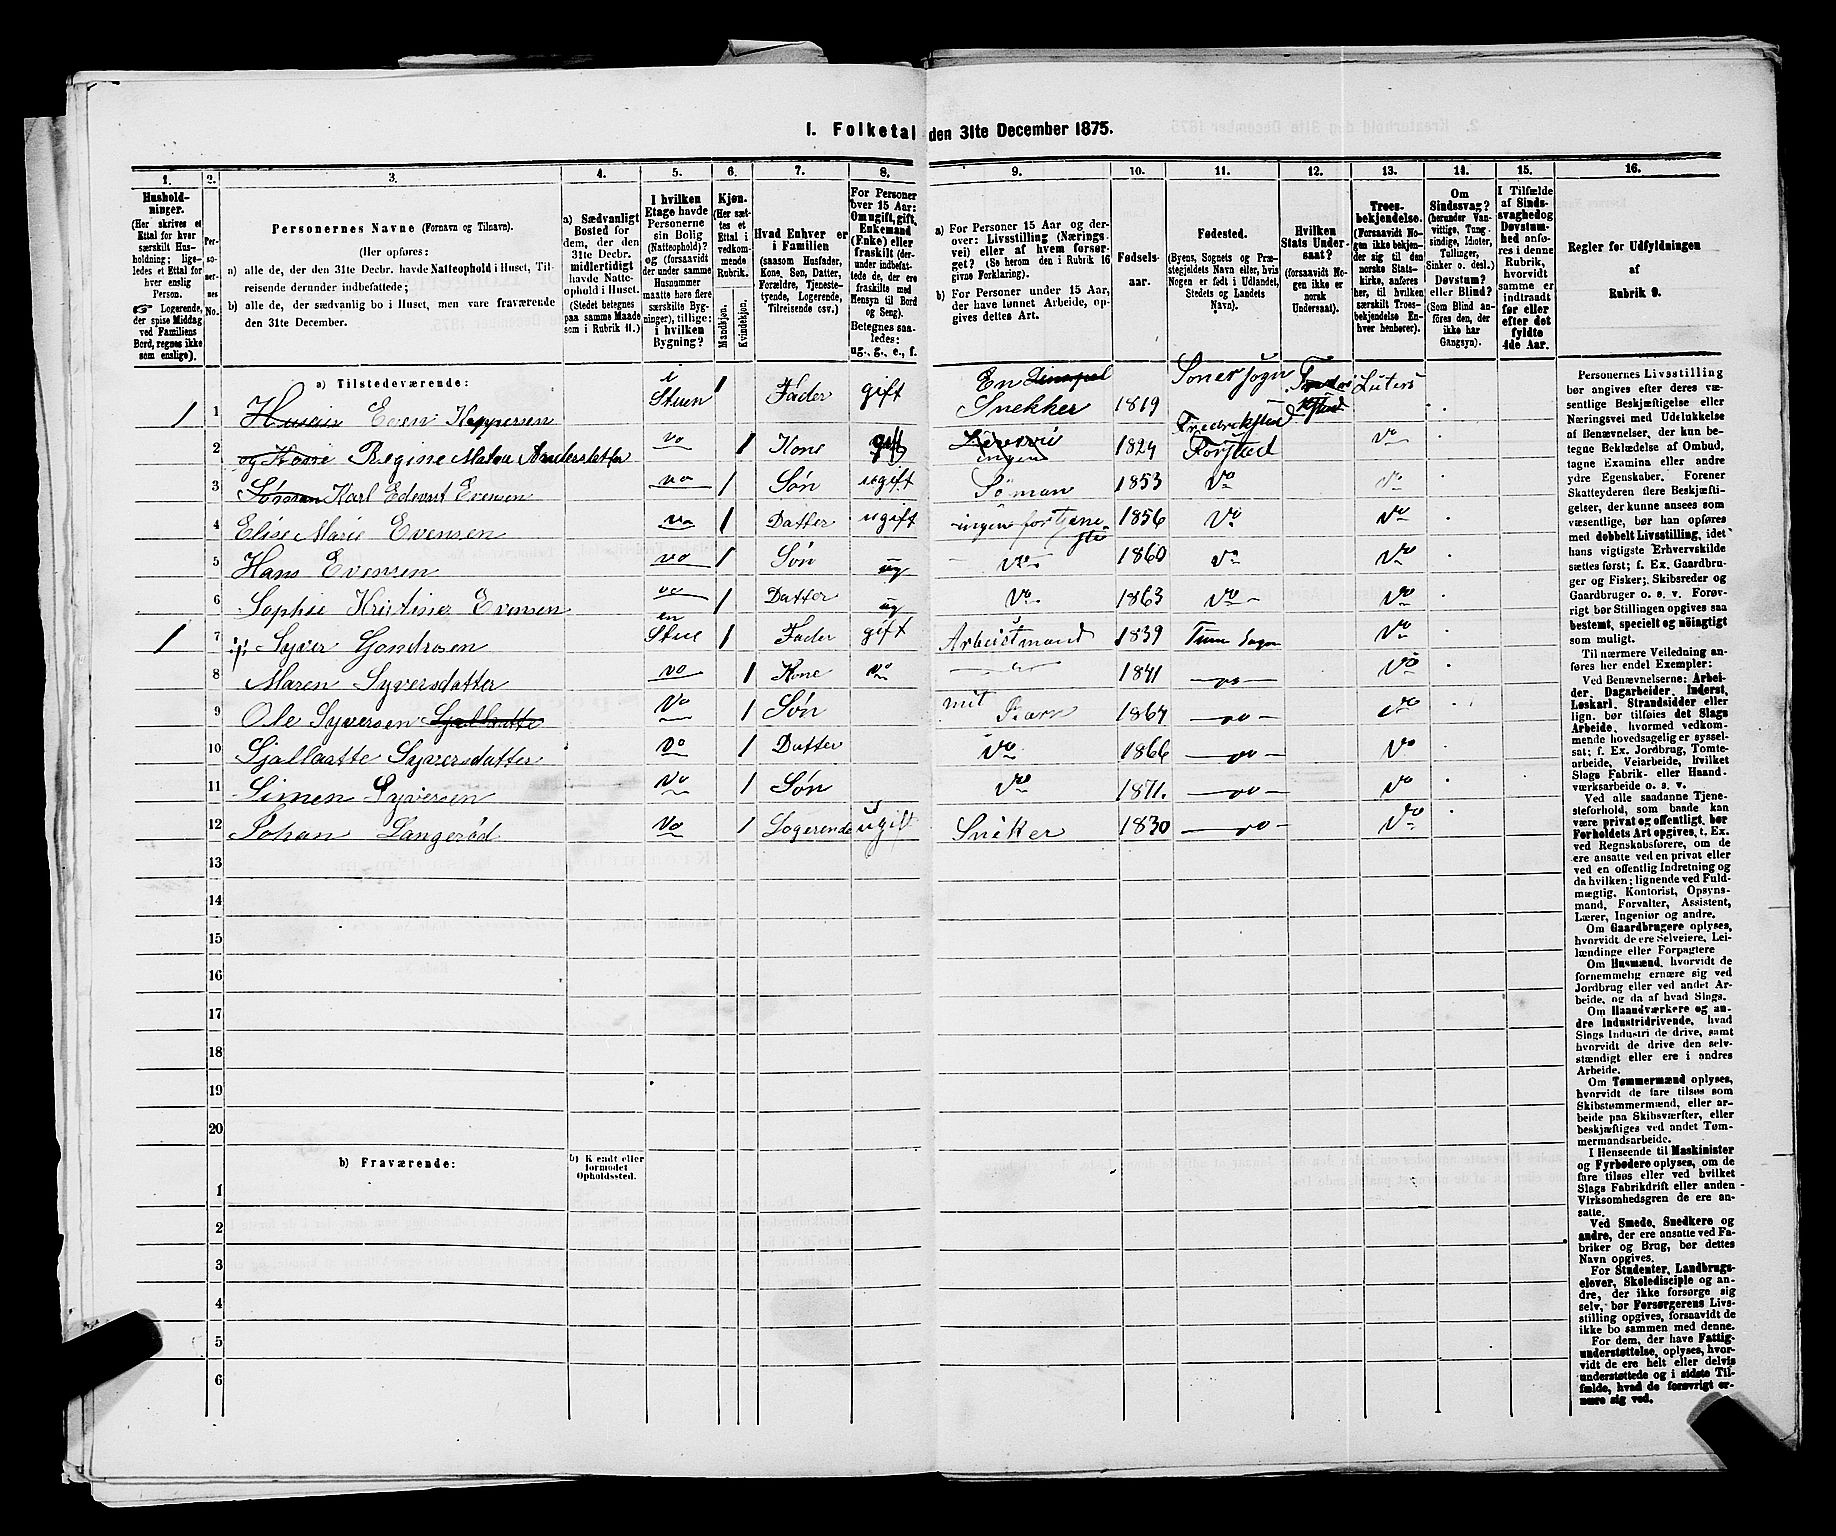 1. Folketal den 31te December 1875.
1.
Hushold-
ninger.
(Her skrives et
Ettal for hver
særskilt Hus-
holdning; lige-
ledes et Ettal for
hver enslig
Person.
Logerende,
der spise Middag
ved Familiens
Bord, regnes ikke
som enslige).
2.
Per-
so-
ner-
nes
No.
3.
Personernes Navne (Fornavn og Tilnavn).
(Her opføres:
a) alle de, der den 31te Decbr. havde Natteophold i Huset, Til-
reisende derunder indbefattede;
b) alle de, der sædvanlig bo i Huset, men vare fraværende
den 31te December.
4.
a) Sædvanligt
Bosted for
dem, der den
31te Decbr.
midlertidigt
havde Natte-
ophold i Huset.
(Stedet betegnes
paa samme Maade
som i Rubrik 11.)
5.
I hvilken
Etage havde
Personerne
sin Bolig
(Natteophold)?
og (forsaavidt
der under samme
Husnummer
maatte høre flere
særskilte Byg-
ninger), tillige:
i hvilken
Bygning?
6.
Kjøn.
(Her sæt-
tes et
Ettal i
vedkom-
mende
Rubrik.
Mandskjøn.
Kvindekjøn.
7.
Hvad Enhver er
i Familien
(saasom Husfader,
Kone, Søn, Datter,
Forældre, Tjeneste-
tyende, Logerende,
Tilreisende osv.)
8.
For Personer
over 15 Aar:
Om ugift, gift,
Enkemand
(Enke) eller
fraskilt (der-
under indbefat-
tede de, der ere
fraskilte med
Hensyn til Bord
og Seng).
Betegnes saa-
ledes:
ug., g., e., f.
9.
a) For Personer 15 Aar og der-
over: Livsstilling (Nærings-
vei) eller af hvem forsør-
get? (Se herom den i Rubrik 16
givne Forklaring).
b) For Personer under 15 Aar,
der have lønnet Arbeide, op-
gives dettes Art.
10.
Fødsels-
aar.
11.
Fødested.
(Byens, Sognets og Præ-
stegjeldets Navn eller, hvis
Nogen er født i Udlandet,
Stedets og Landets
Navn).
12.
Hvilken
Stats Under-
saat?
(forsaavidt No-
gen ikke er
norsk
Undersaat).
13.
Troes-
bekjendelse.
(Forsaavidt No-
gen ikke bekjen-
der sig til den
norske Stats-
kirke, anføres
her, til hvilken
særskilt Troes-
bekjendelse En-
hver henhører).
14.
Om
Sindssvag?
(herunder Van-
vittige, Tung-
sindige, Idioter,
Tullinger,
Sinker o. desl.)
Døvstum?
eller Blind?
(Som Blind an-
føres den, der
ikke har
Gangsyn).
15.
I Tilfælde
af Sinds-
svaghed og
Døvstum-
hed anfø-
res i denne
Rubrik,
hvorvidt
samme er
indtraadt
før eller
efter det
fyldte
4de Aar.
16.
Regler for Udfyldningen
af
Rubrik 9.
a) Tilstedeværende:
1 1 Even Keppersen i Stuen 1 Fader gift En Snekker 1819 Soner sogn Luters
2 og Kone Regine Andersdatter vo 1 Kone gift ingen 1824 Fredrikstad Forstad Vo
3 Karl Edvart Evensen vo 1 Søn ugift Söman 1853 Vo Vo
4 Elise Marie Evensen vo 1 Datter ugift ingen fortjeneste 1856 Vo Vo
5 Hans Evensen vo 1 Søn ug Vo 1860 Vo Vo
6 Sophie Kristine Evensen vo 1 Datter ug Vo 1863 Vo Vo
1 7 Syver Gondrosen en Stue 1 Fader gift Arbeistmand 1839 Tune Sogn Vo
8 Maren Syversdatter vo 1 Kone vo 1841 vo Vo
9 Ole Syversen vo 1 Søn mit Barn 1864 vo Vo
10 Sjallaatte Syversdatter vo 1 Datter Vo 1866 vo Vo
11 Simen Syversen Vo 1 Søn Vo 1871. vo Vo
12 Johan Langerød Vo 1 Logerende ugift Sniker 1830 vo Vo
13
14
15
16
17
18
19
20
b) Fraværende:
b) Kjendt eller
formodet
Opholdssted.
1
2
3
4
5
6
Personernes Livsstilling
bør angives efter deres væ-
sentlige Beskjæftigelse eller
Næringsvei med Udelukkelse
af Benævnelser, der kun be-
tegne Beklædelse af Ombud,
tagne Examina eller andre
ydre Egenskaber. Forener
Skatteyderen flere Beskjæfti-
gelser, der kunne ansees som
væsentlige, bør han opføres
med dobbelt Livsstilling, idet
hans vigtigste Erhvervskilde
sættes først; f. Ex. Gaardbru-
ger og Fisker; Skibsreder og
Gaardbruger o. s. v. Forøv-
rigt bør Stillingen opgives saa
bestemt, specielt og nöiagtigt
som muligt.
Til nærmere Veiledning an-
føres her endel Exempler:
Ved Benævnelserne: Arbei-
der, Dagarbeider, Inderst,
Løskarl, Strandsidder eller
lign. bør tilføies det Slags
Arbeide, hvormed vedkom-
mende hovedsagelig er syssel-
sat; f. Ex. Jordbrug, Tomte-
arbeide, Veiarbeide, hvilket
Slags Fabrik- eller Haand-
værksarbeide o. s. v.
Ved alle saadanne Tjene-
steforhold, som baade kan
være privat og offentligt, bør
Forholdets Art opgives, t. Ex.
ved Regnskabsførere, om de
ere ansatte ved en privat eller
ved en offentlig Indretning og
da hvilken; lignende ved Fuld-
mægtig, Kontorist, Opsyns-
mand, Forvalter, Assistent,
Lærer, Ingeniør og andre.
Om Gaardbrugere oplyses,
hvorvidt de ere Selveiere, Lei-
lændinge eller Forpagtere
Om Husmænd, hvorvidt de
fornemmelig ernære sig ved
Jordbrug eller ved andet Ar-
beide, og da af hvad Slags.
Om Haandværkere og an-
dre Industridrivende, hvad
Slags Industri de drive, samt
hvorvidt de drive den selv-
stændigt eller ere i andres
Arbeide.
Om Tømmermænd oplyses,
hvorvidt de fare tilsøs som
Skibstømmermænd, eller ar-
beide paa Skibsværfter, eller
beskjæftiges ved andet Tøm-
mermandsarbeide.
I Henseende til Maskinister
og Fyrbødere oplyses, om de
fare tilsøs eller ved hvilket
Slags Fabrikdrift eller anden
Virksomhedsgren de ere an-
satte.
Ved Smede, Snedkere og
andre, der ere ansatte ved Fa-
briker og Brug, bør dettes
Navn opgives.
For Studenter, Landbrugs-
elever, Skoledisciple og an-
dre, der ikke forsørge sig
selv, bør Forsørgerens Livs-
stilling opgives, forsaavidt de
ikke bo sammen med denne.
For dem, der have Fattig-
understøttelse, oplyses, hvor-
vidt de ere helt eller delvis
understøttede og i sidste Til-
fælde, hvad de forøvrigt er-
nære sig ved.